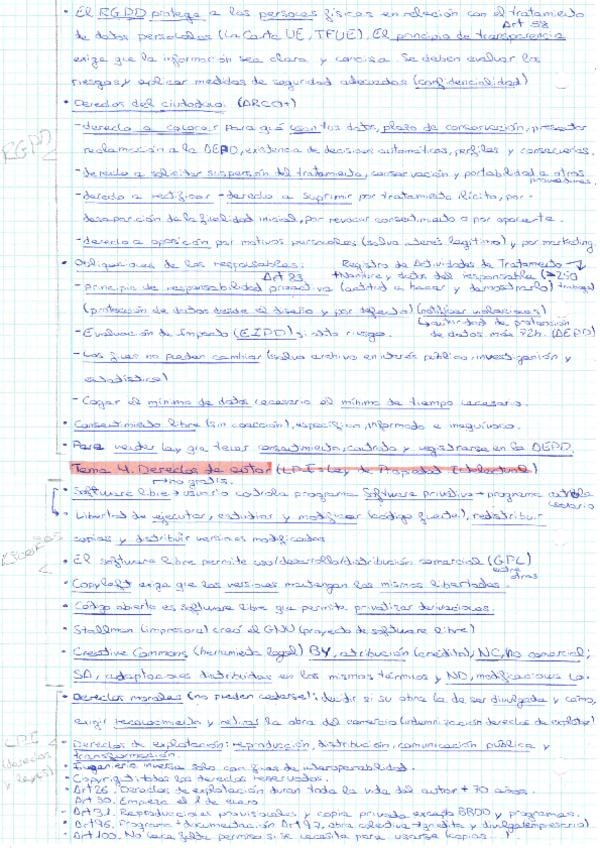 • El RGPD protege a las personas físicas en relación con el tratamiento
Art 5 y 8
de datos personales (La Carta UE, TFUE). El principio de transparencia
exige que la información sea clara y concisa. Se deben evaluar los
riesgos y aplicar medidas de seguridad adecuadas (confidencialidad)
• Derechos del ciudadano: (ARCO+)
RGPD
- derecho a conocer para qué usan tus datos, plazo de conservación, presentar
reclamación a la AEPD, existencia de decisiones automáticas, perfiles y consecuencias.
- derecho a solicitar suspensión del tratamiento, conservación y portabilidad a otros
proveedores.
- derecho a rectificar - derecho a suprimir por tratamiento ilícito, por -
desaparición de la finalidad inicial, por revocar consentimiento o por oponerte.
- derecho a oposición por motivos personales (salvo interés legítimo) y por marketing.
• Obligaciones de los responsables: Registro de Actividades de Tratamiento
Art 23 + Nombre y datos del responsable (≥250
- principio de responsabilidad proactiva (actitud a hacer y demostrarlo) trabaj)
(protección de datos desde el diseño y por defecto) (notificar violaciones)
autoridad de protección
- Evaluación de Impacto (EIPD) si alto riesgo. de datos más 72h. (AEPD)
- Los fines no pueden cambiar (salvo archivo en interés público, investigación y
estadística)
- Coger el mínimo de datos necesario el mínimo de tiempo necesario.
• Consentimiento libre (sin coacción), específico, informado e inequívoco.
• Para vender hay que tener consentimiento, contrato y registrarse en la AEPD.
Tema 4. Derechos de autor (LPI: Ley de Propiedad Intelectual)
→ no gratis.
• Software libre → usuario controla programa Software privativo → programa controla
usuario
• Libertad de ejecutar, estudiar y modificar (código fuente), redistribuir
copias y distribuir versiones modificadas
• El software libre permite uso/desarrollo/distribución comercial (GPL)
entre
otras
• Copyleft exige que las versiones mantengan las mismas libertades.
• Código abierto es software libre que permite privatizar derivaciones.
• Stallman (impresora) creó el GNU (proyecto de software libre)
• Creative Commons (herramienta legal) BY, atribución (crédito), NC, no comercial;
SA, adaptaciones distribuidas en los mismos términos y ND, modificaciones no.
• Derechos morales (no pueden cederse): decidir si su obra ha de ser divulgada y cómo,
exigir reconocimiento y retirar la obra del comercio (indemnización derechos de explotación)
LPI
(derechos
y leyes)
• Derechos de explotación: reproducción, distribución, comunicación pública y
transformación.
• Ingeniería inversa solo con fines de interoperabilidad.
• Copyright: todos los derechos reservados.
• Art 26. Derechos de explotación duran toda la vida del autor + 70 años.
• Art 30. Empieza el 1 de enero.
• Art 31. Reproducciones provisionales y copia privada excepto BBDD y programas.
• Art 96. Programa + documentación Art 97. obra colectiva
• Art 100. No hace falta permiso si se necesita para usarse (copias